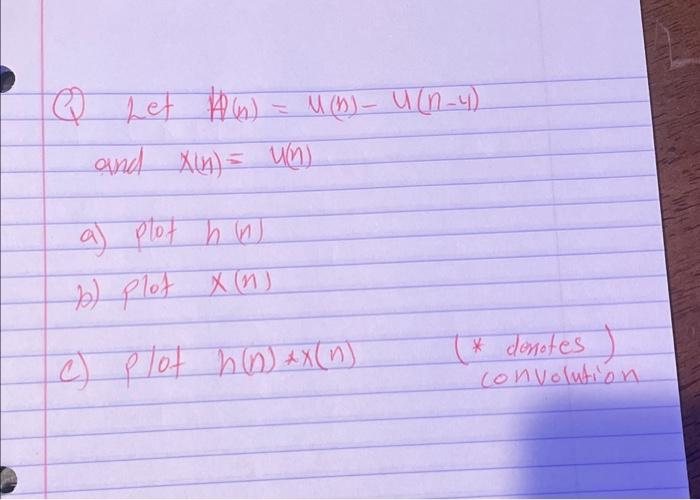 Q Let h(n) = u(n) - u(n-4)
and x(n) = u(n)
a) plot h(n)
b) plot x(n)
c) plot h(n) * x(n) (* denotes )
convolution